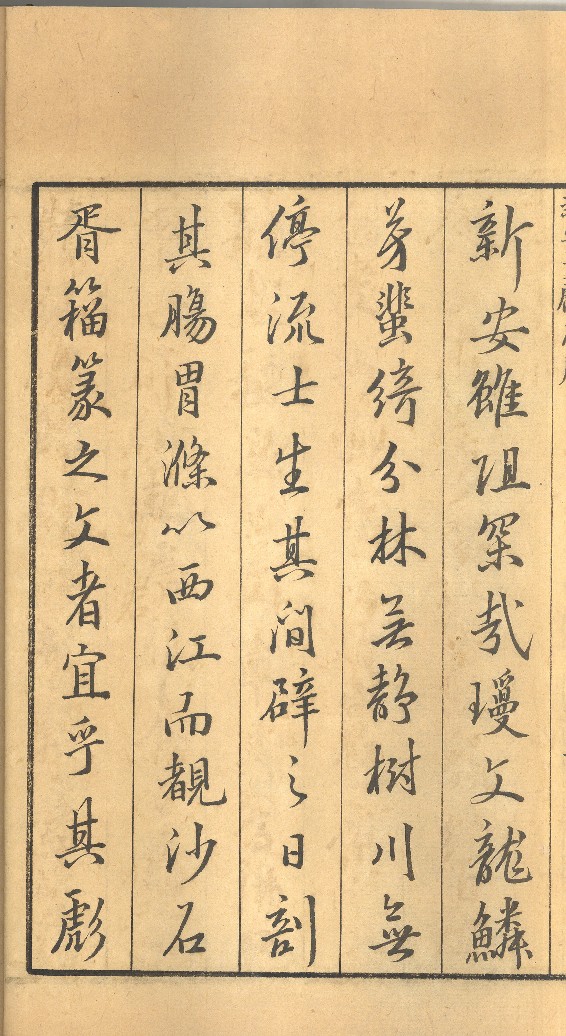 新安雖阻罙哉瓊文龍鱗
芳蜚綺分林无靜樹川無
停流士生其間辟之日剖
其腸胃滌以西江而覩沙石
胥籀篆之文者宜乎其彪